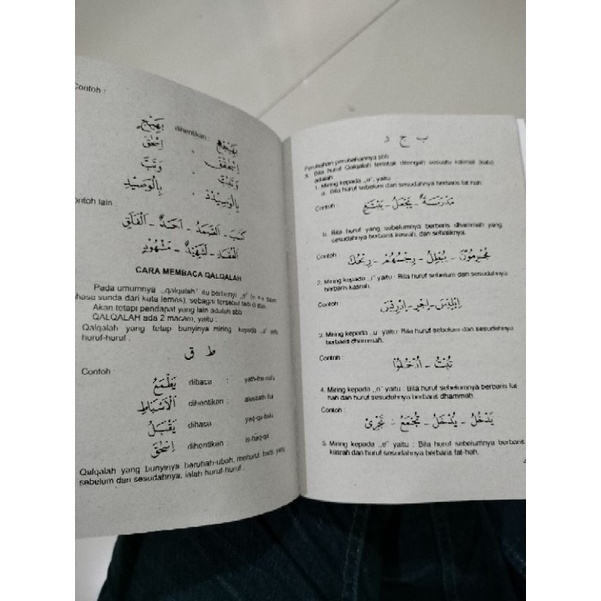 Contoh :
بَهِيْجٍ : dihentikan بَهِيْجْ
وَتَبَّ وَتَبْ
بِالْوَصِيْدِ بِالْوَصِيْدْ
Contoh lain
كَسَبَ - اَلصَّمَدُ - اَحَدٌ - اَلْفَلَقِ
شَهِيْدٌ - مَشْهُوْدٍ
CARA MEMBACA QALQALAH
Pada umumnya ,,qalqalah" itu berbunyi ,,e"
bahasa sunda dari kata lemes), sebagai tersebut tadi di atas.
Akan tetapi pendapat yang lain adalah sbb
QALQALAH ada 2 macam, yaitu :
Qalqalah yang tetap bunyinya miring kepada
huruf-huruf :
ط ق
Contoh :
يَطْمَعُ dibaca :
اَلْاَسْبَاطِ dihentikan :
يَقْبَلُ dibaca :
اِسْحٰقَ dihentikan :
Qalqalah yang bunyinya berubah-ubah, menurut baris yang
sebelum dan sesudahnya, ialah huruf-huruf :
ب ج د
Perubahan perubahannya sbb
Bila huruf Qalqalah terletak ditengah sesuatu kalimat (kata)
adalah
1. Miring kepada ,,a", yaitu :
a. Bila huruf sebelum dan sesudahnya berbaris fat-hah.
Contoh : مَدْرَسَةٌ - يَجْعَلُ -
b. Bila huruf yang sebelumnya berbaris dhammah yang
sesudahnya berbaris kasrah, dan sebaliknya.
Contoh مُجْرِمُوْنَ - يُبْطِلُ -
2. Miring kepada ,,i" yaitu : Bila huruf sebelum dan sesudahnya
berbaris kasrah.
Contoh اِبْلِيْسَ -
3. Miring kepada ,,u" yaitu: Bila huruf sebelum dan sesudahnya
berbaris dhammah.
Contoh :
تُبْتُ - اُدْخُلُوْا
4. Miring kepada ,,o" yaitu : Bila huruf sebelumnya berbaris fat
hah dan huruf sesudahnya berbaris dhammah.
Contoh :
يَدْخُلُ -
5. Miring kepada ,,e" yaitu : Bila huruf sebelumnya berbaris
kasrah dan huruf sesudahnya berbaris fat-hah.